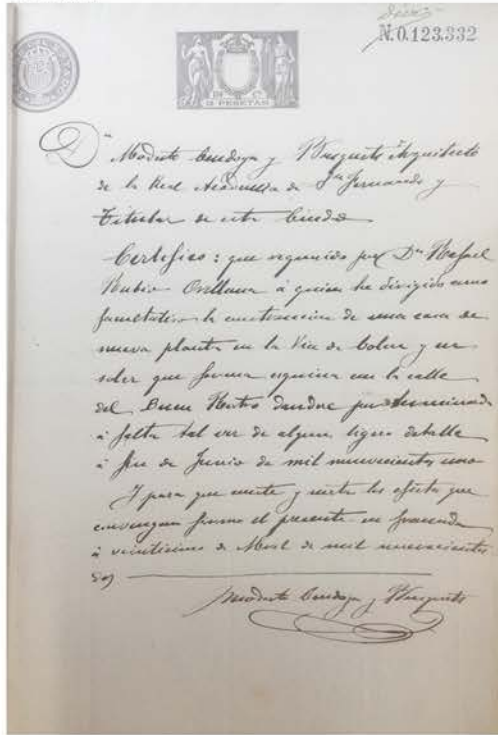 N.0.123.332
2 PESETAS
Dn Modesto Cendoya y Busquets Arquitecto
de la Real Academia de Sn Fernando y
Titular de esta Ciudad
Certifico: que requerido por Dn Rafael
Rubio Orellana á quien he dirigido como
facultativo la construccion de una casa de
nueva planta en la Via de Colon y un
solar que forma esquina con la calle
del Buen Rostro dandose por terminada
á falta tal vez de algun ligero detalle
á fin de Junio de mil nuevecientos uno
Y para que conste y surta los efectos que
convengan firmo el presente en Granada
á veinticinco de Abril de mil nuevecientos
dos
Modesto Cendoya y Busquets